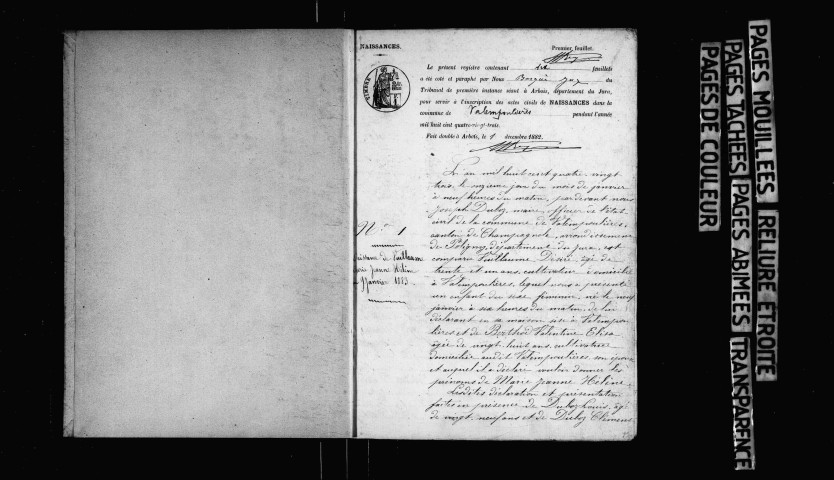 NAISSANCES.
Premier feuillet.
Le présent registre contenant dix feuillets
a été coté et paraphé par Nous juge du
Tribunal de première instance séant à Arbois, département du Jura,
pour servir à l'inscription des actes civils de NAISSANCES dans la
commune de Valempoulières pendant l'année
mil huit cent quatre-vingt-trois.
Fait double à Arbois, le 1 décembre 1882.
TIMBRE
L'an mil huit cent quatre vingt
trois, le onzième jour du mois de janvier
à neuf heures du matin, pardevant nous
Joseph Duboz, maire, officier de l'état
civil de la commune de Valempoulières,
canton de Champagnole, arrondissement
de Poligny, département du Jura, est
comparu Vuillaume Désiré, âgé de
trente et un ans, cultivateur domicilié
à Valempoulières, lequel nous a présenté
un enfant du sexe féminin, né le neuf
janvier à six heures du matin, de lui
déclarant en sa maison sise à Valempou
lières et de Valentine Elisa
âgée de vingt huit ans, cultivatrice
domiciliée audit Valempoulières, son épouse
et auquel il a déclaré vouloir donner les
prénoms de Marie Jeanne Hélène
Lesdites déclaration et présentation
faites en présence de Duboz Louis, âgé
de vingt-neuf ans et de Duboz Clément
N° 1
naissance de Vuillaume
Marie Jeanne Hélène
9 janvier 1883
PAGES MOUILLEES RELIURE ETROITE
PAGES TACHEES PAGES ABIMEES TRANSPARENCE
PAGES DE COULEUR